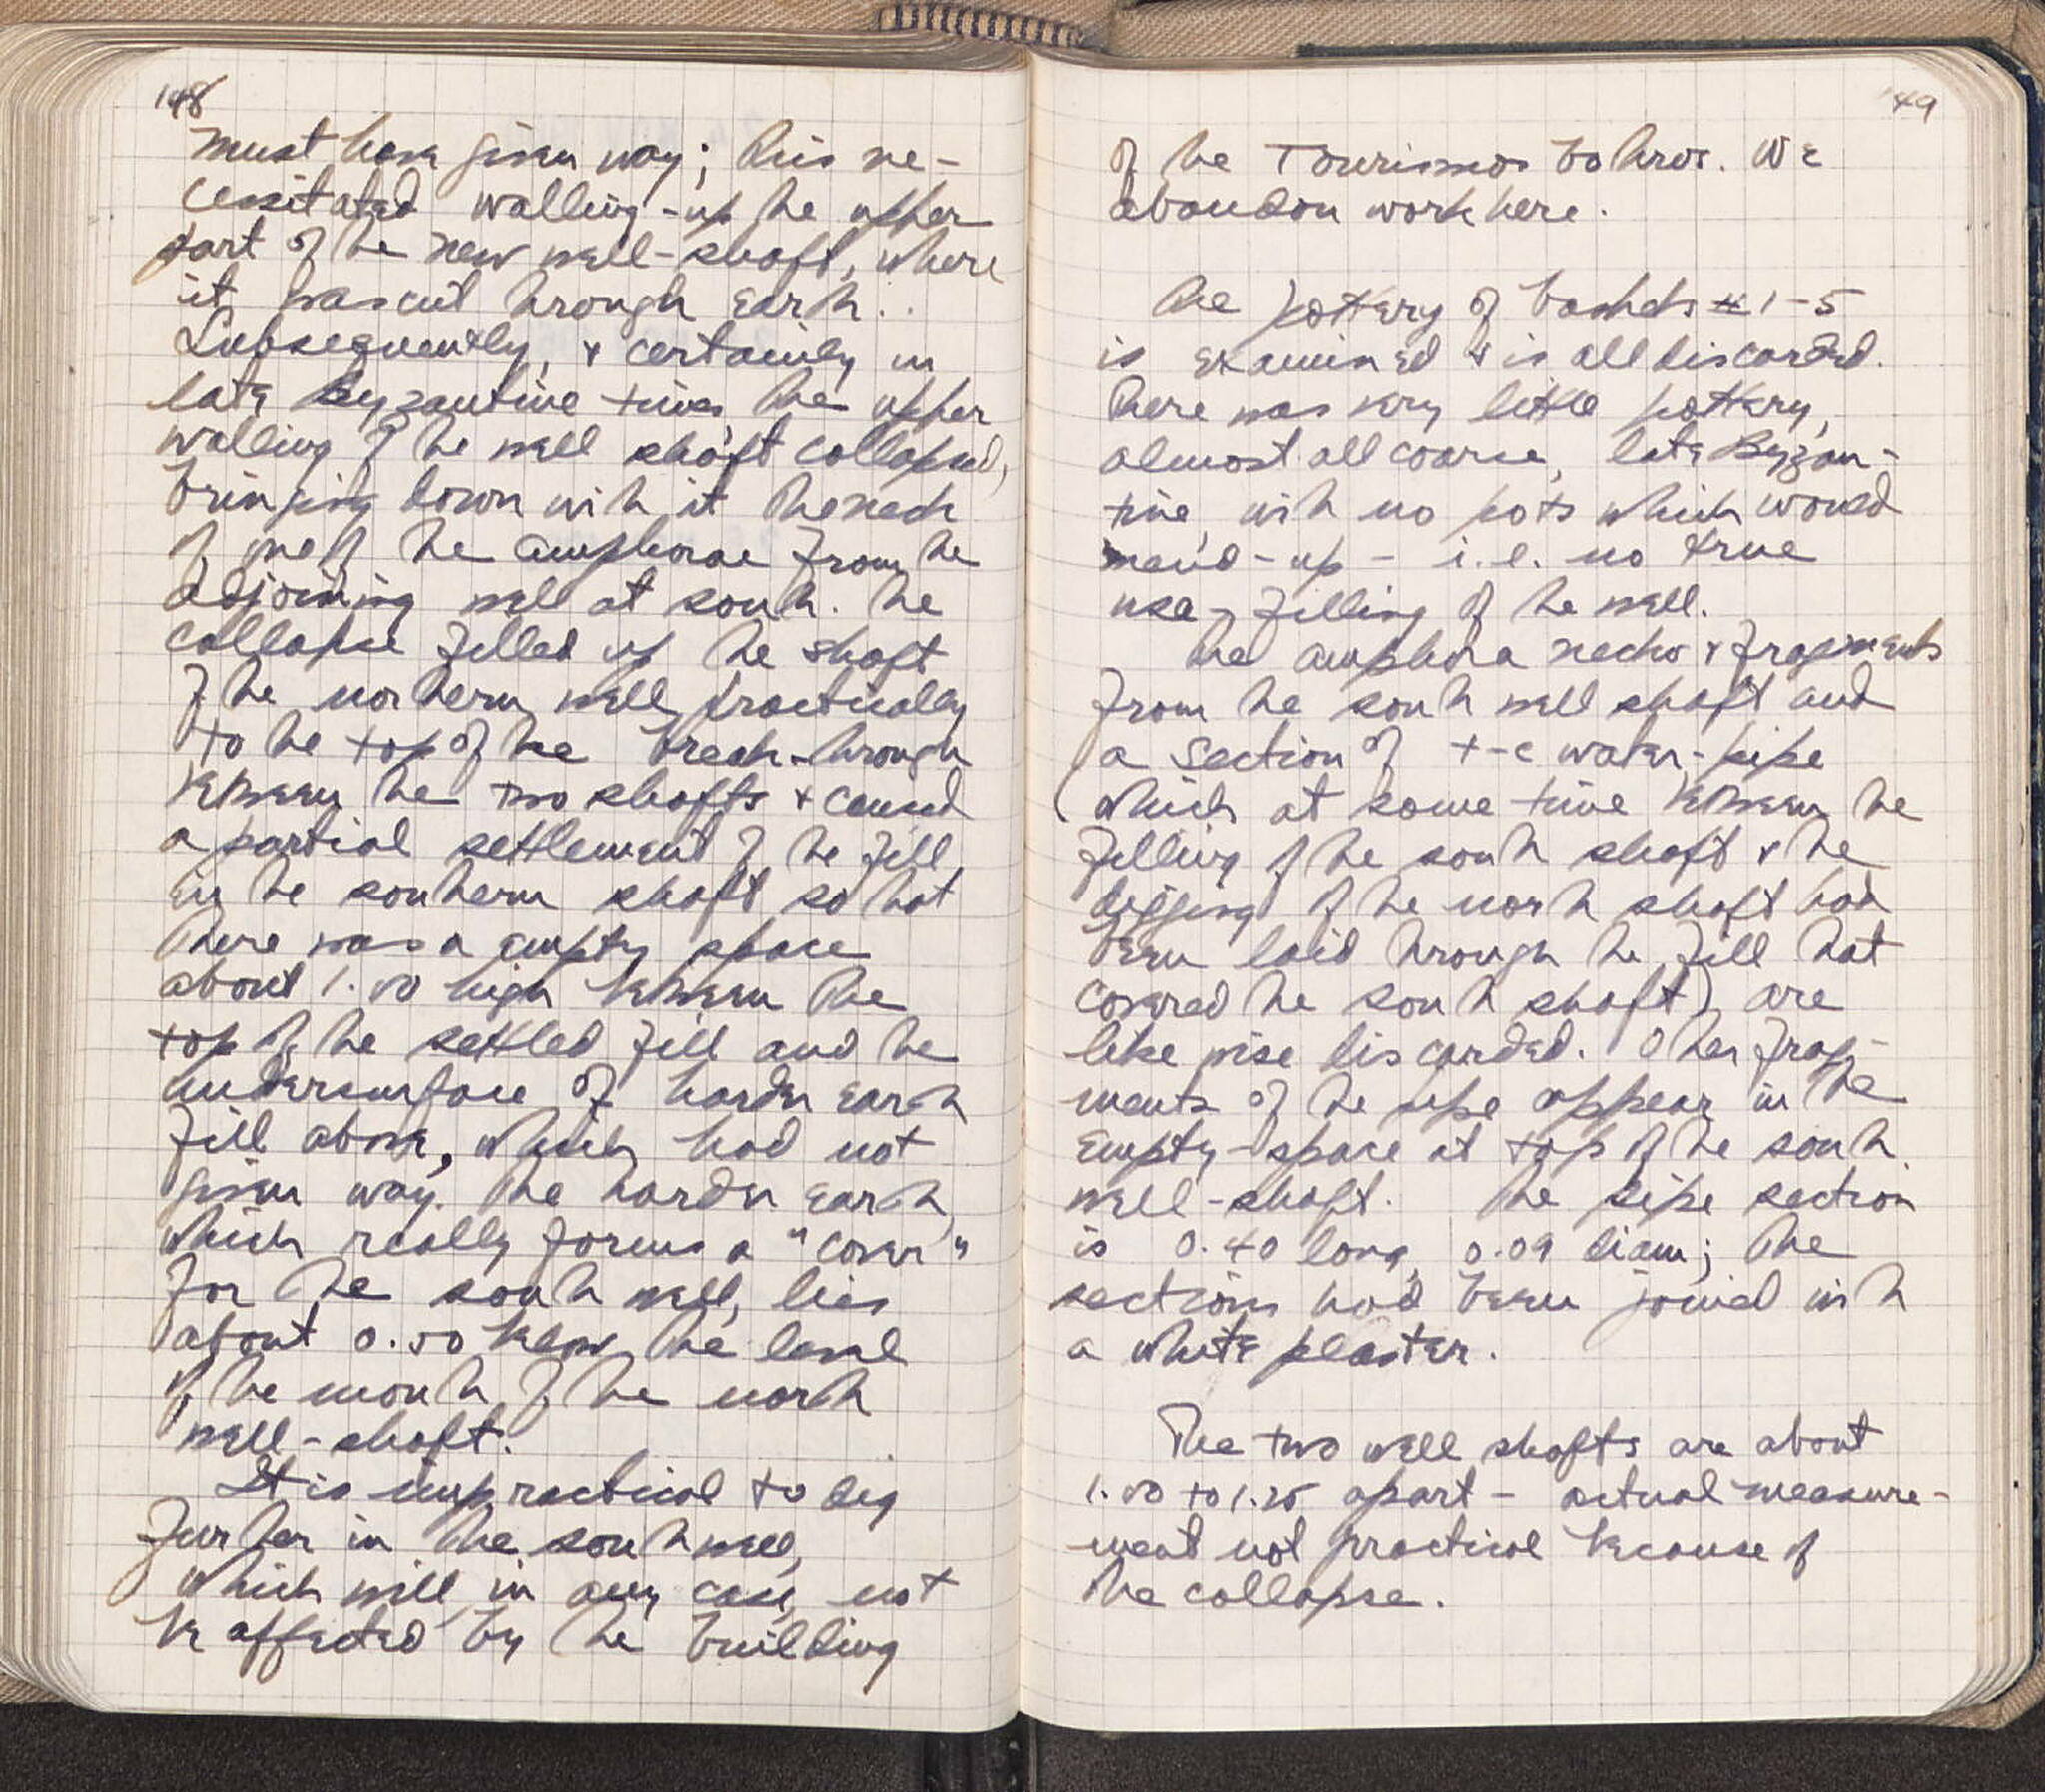 148
must have given way; this ne-
cessitated walling-up the upper
part of the new well-shaft, where
it was cut through earth..
Subsequently, & certainly in
late Byzantine times, the upper
walling of the well shaft collapsed,
bringing down with it the neck
of one of the amphorae from the
adjoining well at south. The
collapse filled up the shaft
of the northern well practically
to the top of the break-through
between the two shafts & caused
a partial settlement of the fill
in the southern shaft so that
there was a empty space
about 1.00 high between the
top of the settled fill and the
undersurface of harder earth
fill above, which had not
given way. The harder earth,
which really forms a "cover"
for the south well, lies
about 0.50 below the level
of the mouth of the north
well-shaft.
It is impractical to dig
further in the south well,
which will in any case not
be affected by the building
149
of the Tourismos bothros. We
abandon work here.
The pottery of baskets #1-5
is examined & is all discarded.
There was very little pottery,
almost all coarse, late Byzan-
tine, with no pots which would
mend-up - i.e. no true
use-filling of the well.
The amphora necks & fragments
from the south well shaft and
a section of t-c water-pipe
(which at some time between the
filling of the south shaft & the
digging of the north shaft had
been laid through the fill that
covered the south shaft) are
like wise discarded. Other frag-
ments of the pipe appear in the
empty-space at top of the south
well-shaft. The pipe section
is 0.40 long, 0.09 diam; the
sections had been joined with
a white plaster.
The two well shafts are about
1.00 to 1.25 apart - actual measure-
ment not practical because of
the collapse.